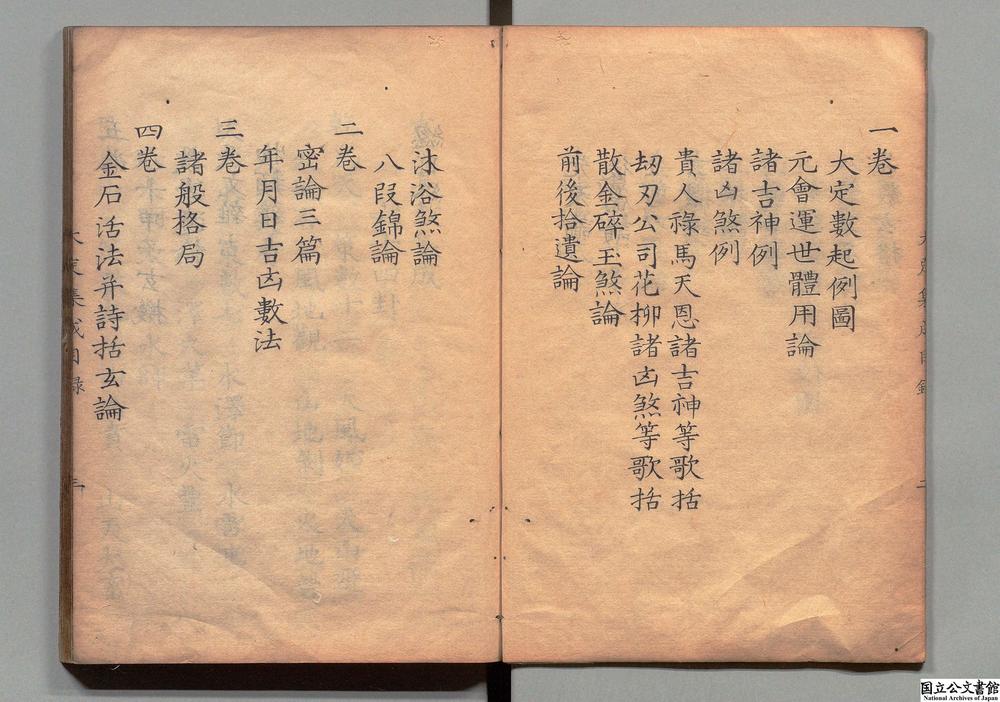 一卷
大定數起例圖
元會運世體用論
諸吉神例
諸凶煞例
貴人祿馬天恩諸吉神等歌括
刼刃公司花柳諸凶煞等歌括
散金碎玉煞論
前後拾遺論
沐浴煞論
八段錦論
二卷
密論三篇
年月日吉凶數法
三卷
諸般格局
四卷
金石活法并詩括玄論
国立公文書館
National Archives of Japan